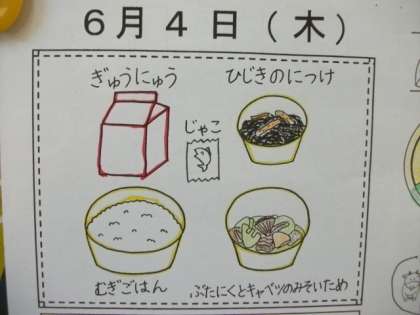 6月4日(木)
ぎゅうにゅう
ひじきのにつけ
じゃこ
むぎごはん
ぶたにくとキャベツのみそいため